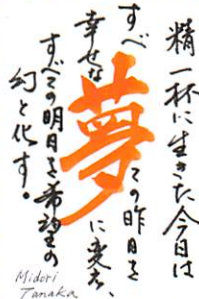 精一杯に生きた今日は
すべての昨日を
幸せな夢に変え、
すべての明日を希望の
幻と化す。
Midori
Tanaka